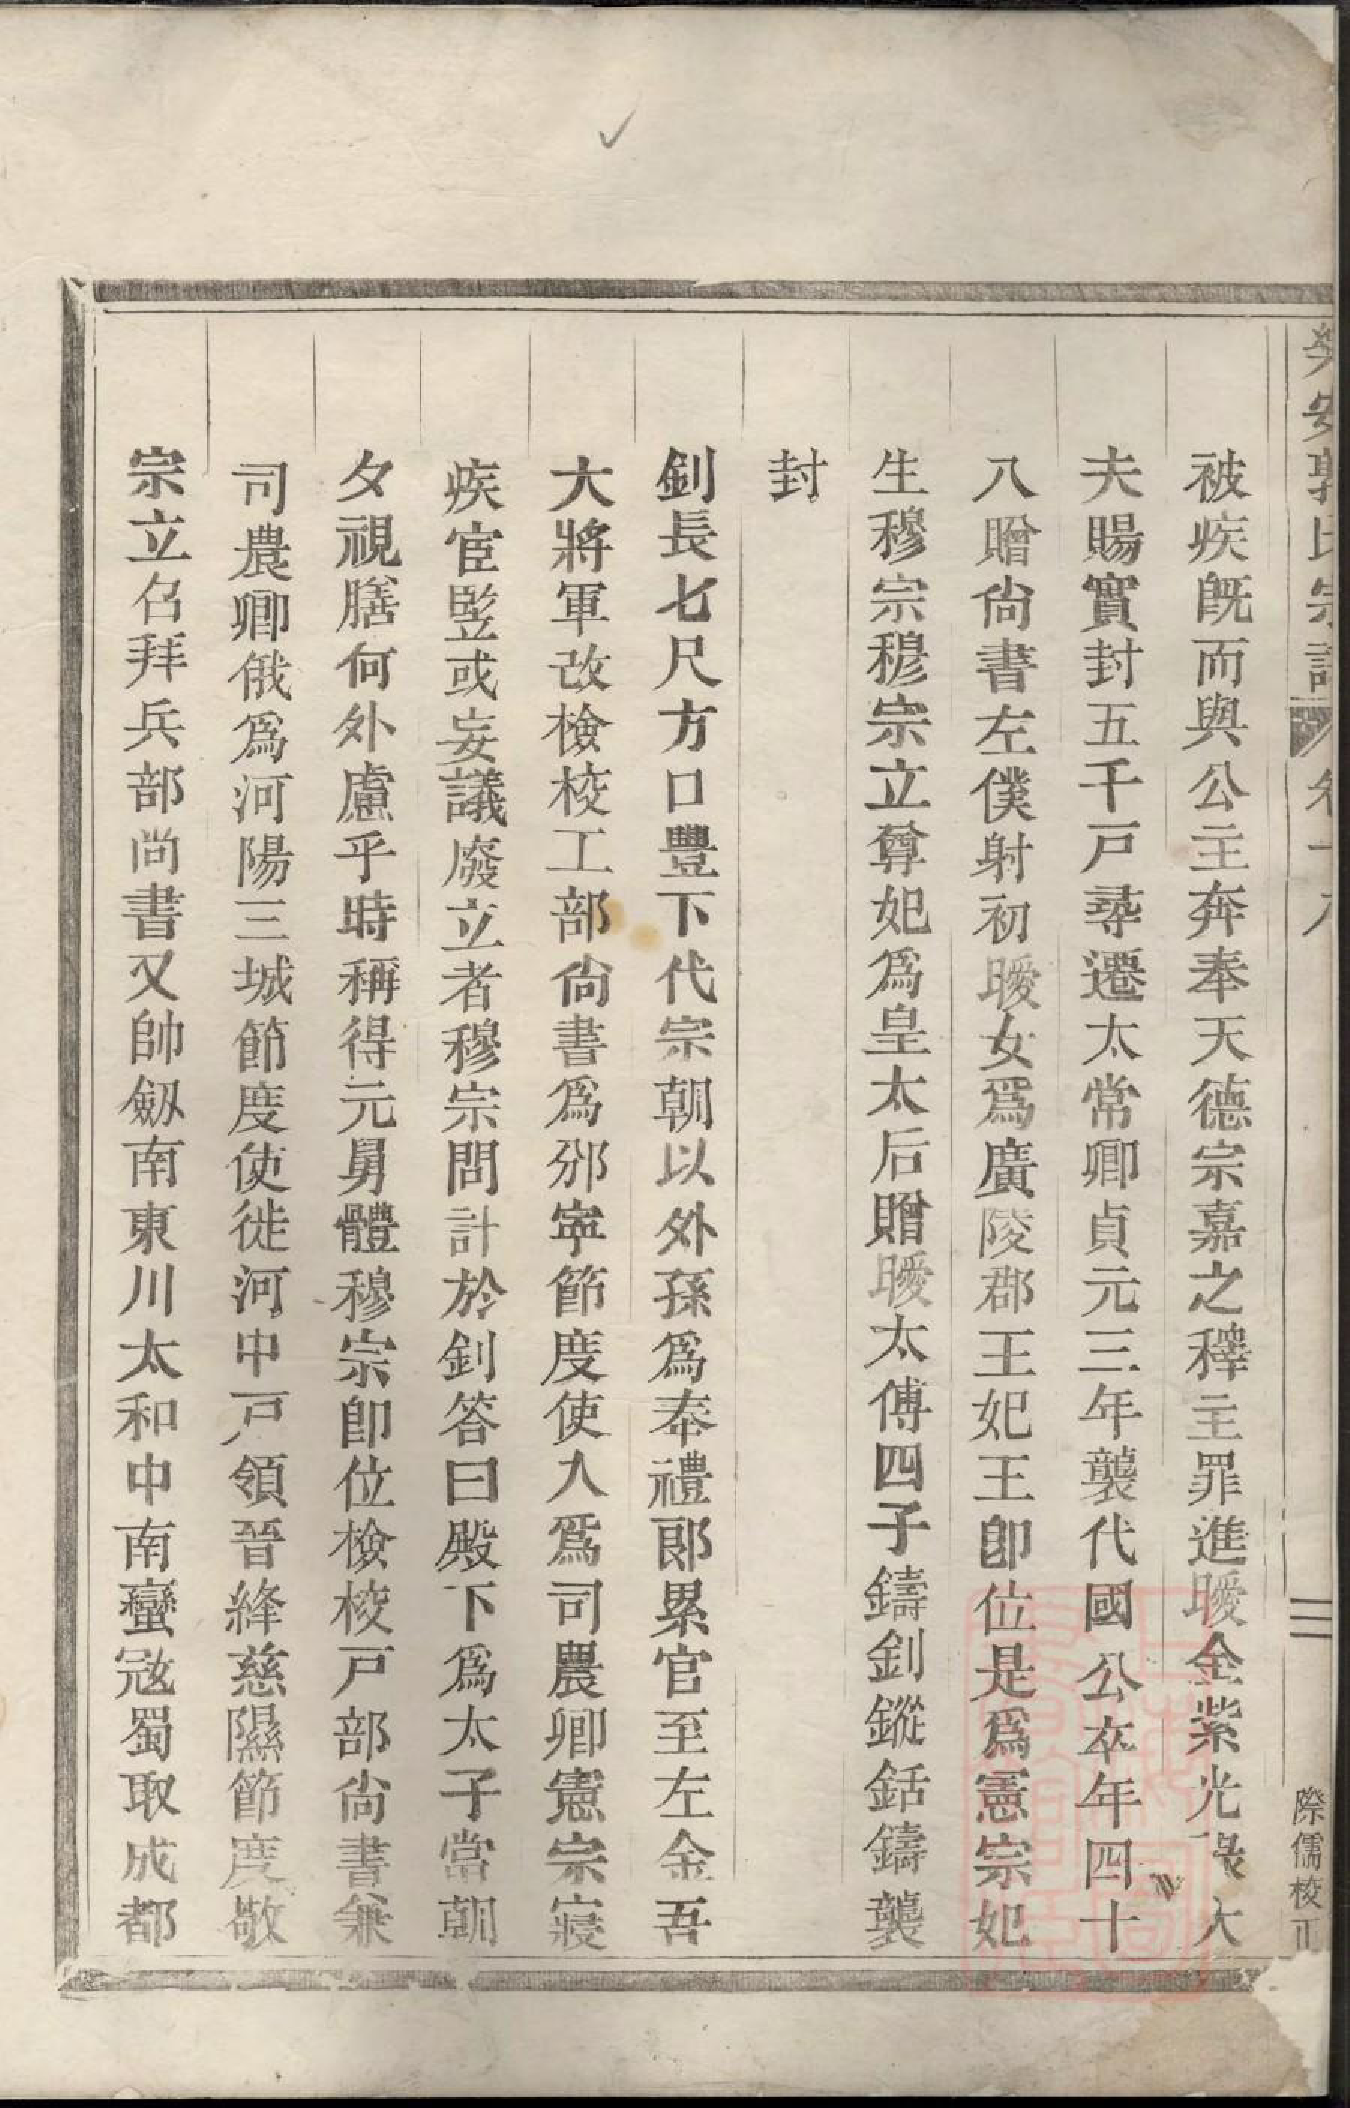 郭氏宗譜
際儒校正
被疾既而與公主奔奉天德宗嘉之釋主罪進曖金紫光祿大
夫賜實封五千戸尋遷太常卿貞元三年襲代國公卒年四十
八贈尙書左僕射初曖女爲廣陵郡王妃王卽位是爲憲宗妃
生穆宗穆宗立尊妃爲皇太后贈曖太傅四子鑄釗鏦銛鑄襲
封
釗長七尺方口豐下代宗朝以外孫爲奉禮郞累官至左金吾
大將軍改檢校工部尙書爲邠寧節度使入爲司農卿憲宗寢
疾宦監或妄議廢立者穆宗問計於釗答曰殿下爲太子當朝
夕視膳何外慮乎時稱得元舅體穆宗卽位檢校戸部尙書兼
司農卿俄爲河陽三城節度使徙河中戸領晉絳慈隰節度敬
宗立召拜兵部尚書又帥劔南東川太和中南蠻寇蜀取成都